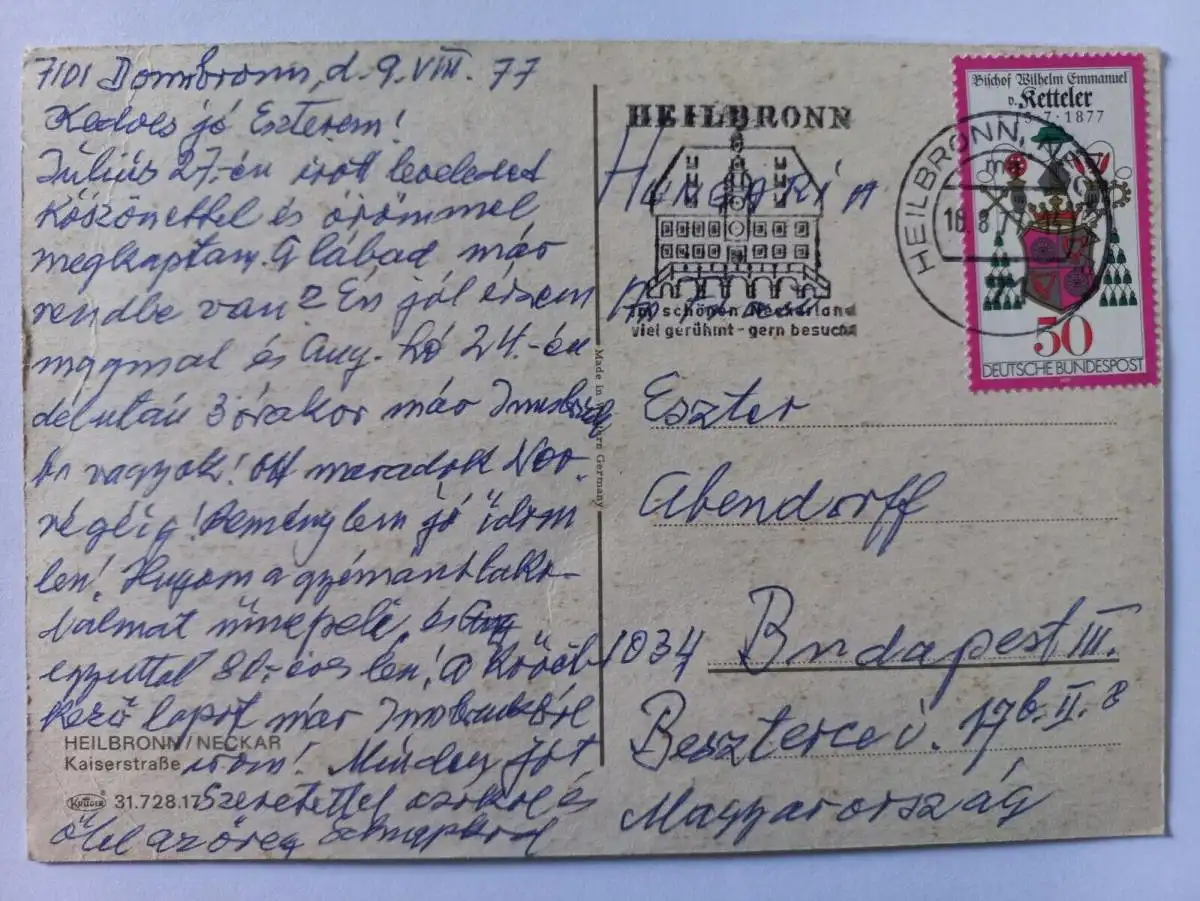 7101 Donnbronn, d. 9. VIII. 77
Kedves jó Eszterem!
Július 27.-én írott leveledet
köszönettel és örömmel
megkaptam. A lábad már
rendbe van? Én jól érzem
magmat és Aug. hó 24.-én
délután 3 órakor már Innsbruck
ön vagyok! Ott maradok Nov.
végéig! Reménylem jó időm
len! Hugom a gyémántlako-
dalmát ünnepeli, és
egyuttal 80.-éves len! A követ-
kező lapot már Innsbruckból
irom! Minden jót
Szeretettel csókol és
ölel az öreg
HEILBRONN/NECKAR
Kaiserstraße
KRÜGER 31.728.17
Made in Western Germany
HEILBRONN
im schönen Neckarland
viel gerühmt - gern besucht
HEILBRONN,
Bischof Wilhelm Emmanuel
v. Ketteler
13·7·1877
50
DEUTSCHE BUNDESPOST
HUNGARIA
Eszter
Abendorff
1034 Budapest III.
Beszterce u. 17 b. II. 8
Magyarország